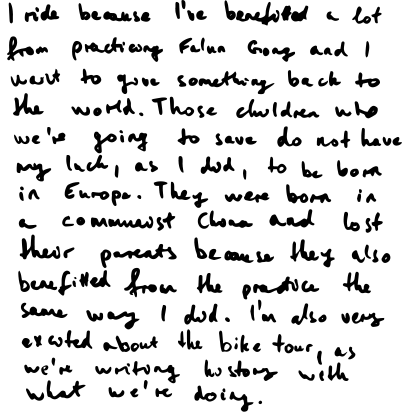 I ride because I've benefitted a lot
from practicing Falun Gong and I
want to give something back to
the world. Those children who
we're going to save do not have
my luck, as I did, to be born
in Europe. They were born in
a communist China and lost
their parents because they also
benefitted from the practice the
same way I did. I'm also very
excited about the bike tour, as
we're writing history with
what we're doing.